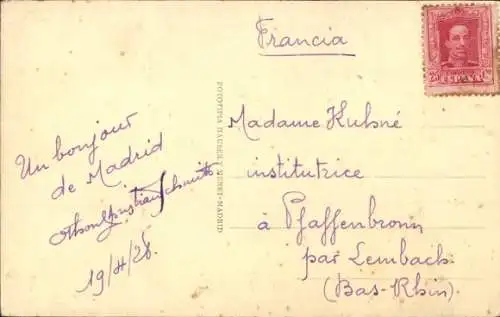 Francia
Un bonjour
de Madrid
19/4/28.
FOTOTIPIA HAUSER Y MENET.-MADRID
Madame Kuhné
institutrice
à Pfaffenbronn
par Lembach
(Bas-Rhin).
25 ESPAÑA